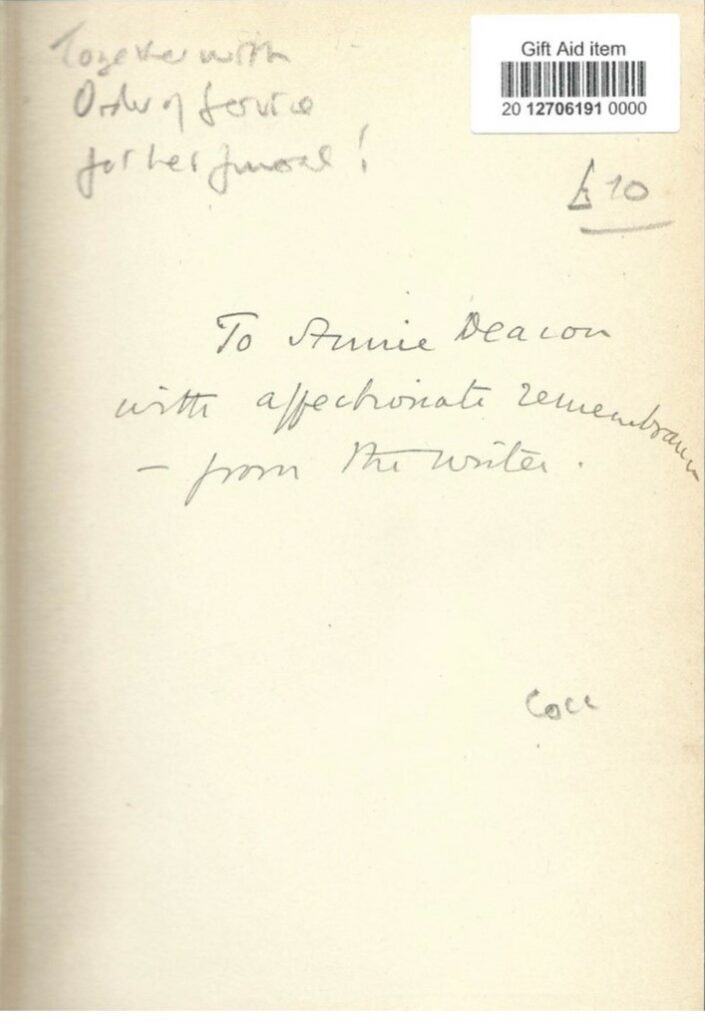 Together with
Order of Service
for her funeral!
Gift Aid item
20 12706191 0000
£10
To Annie Deacon
with affectionate remembrance
– from the writer.